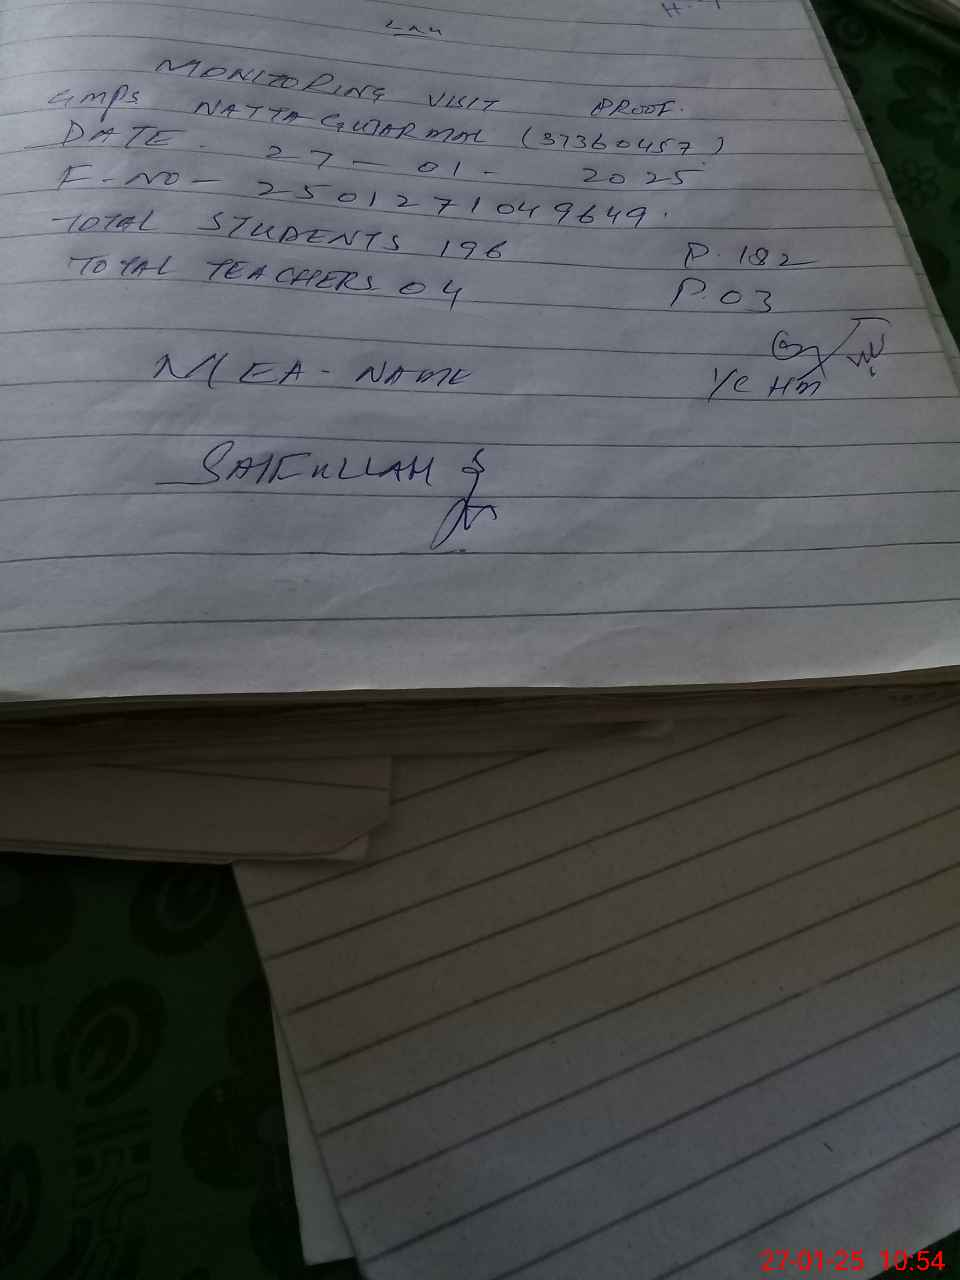 MONITORING VISIT PROOF.
GMPS NATTA GUJAR MAL (37360457)
DATE. 27-01-2025
F-NO- 2501271049649.
TOTAL STUDENTS 196 P.182
TOTAL TEACHERS 04 P.03
MEA-NAME
I/C HM
SAIFULLAH
27-01-25 10:54